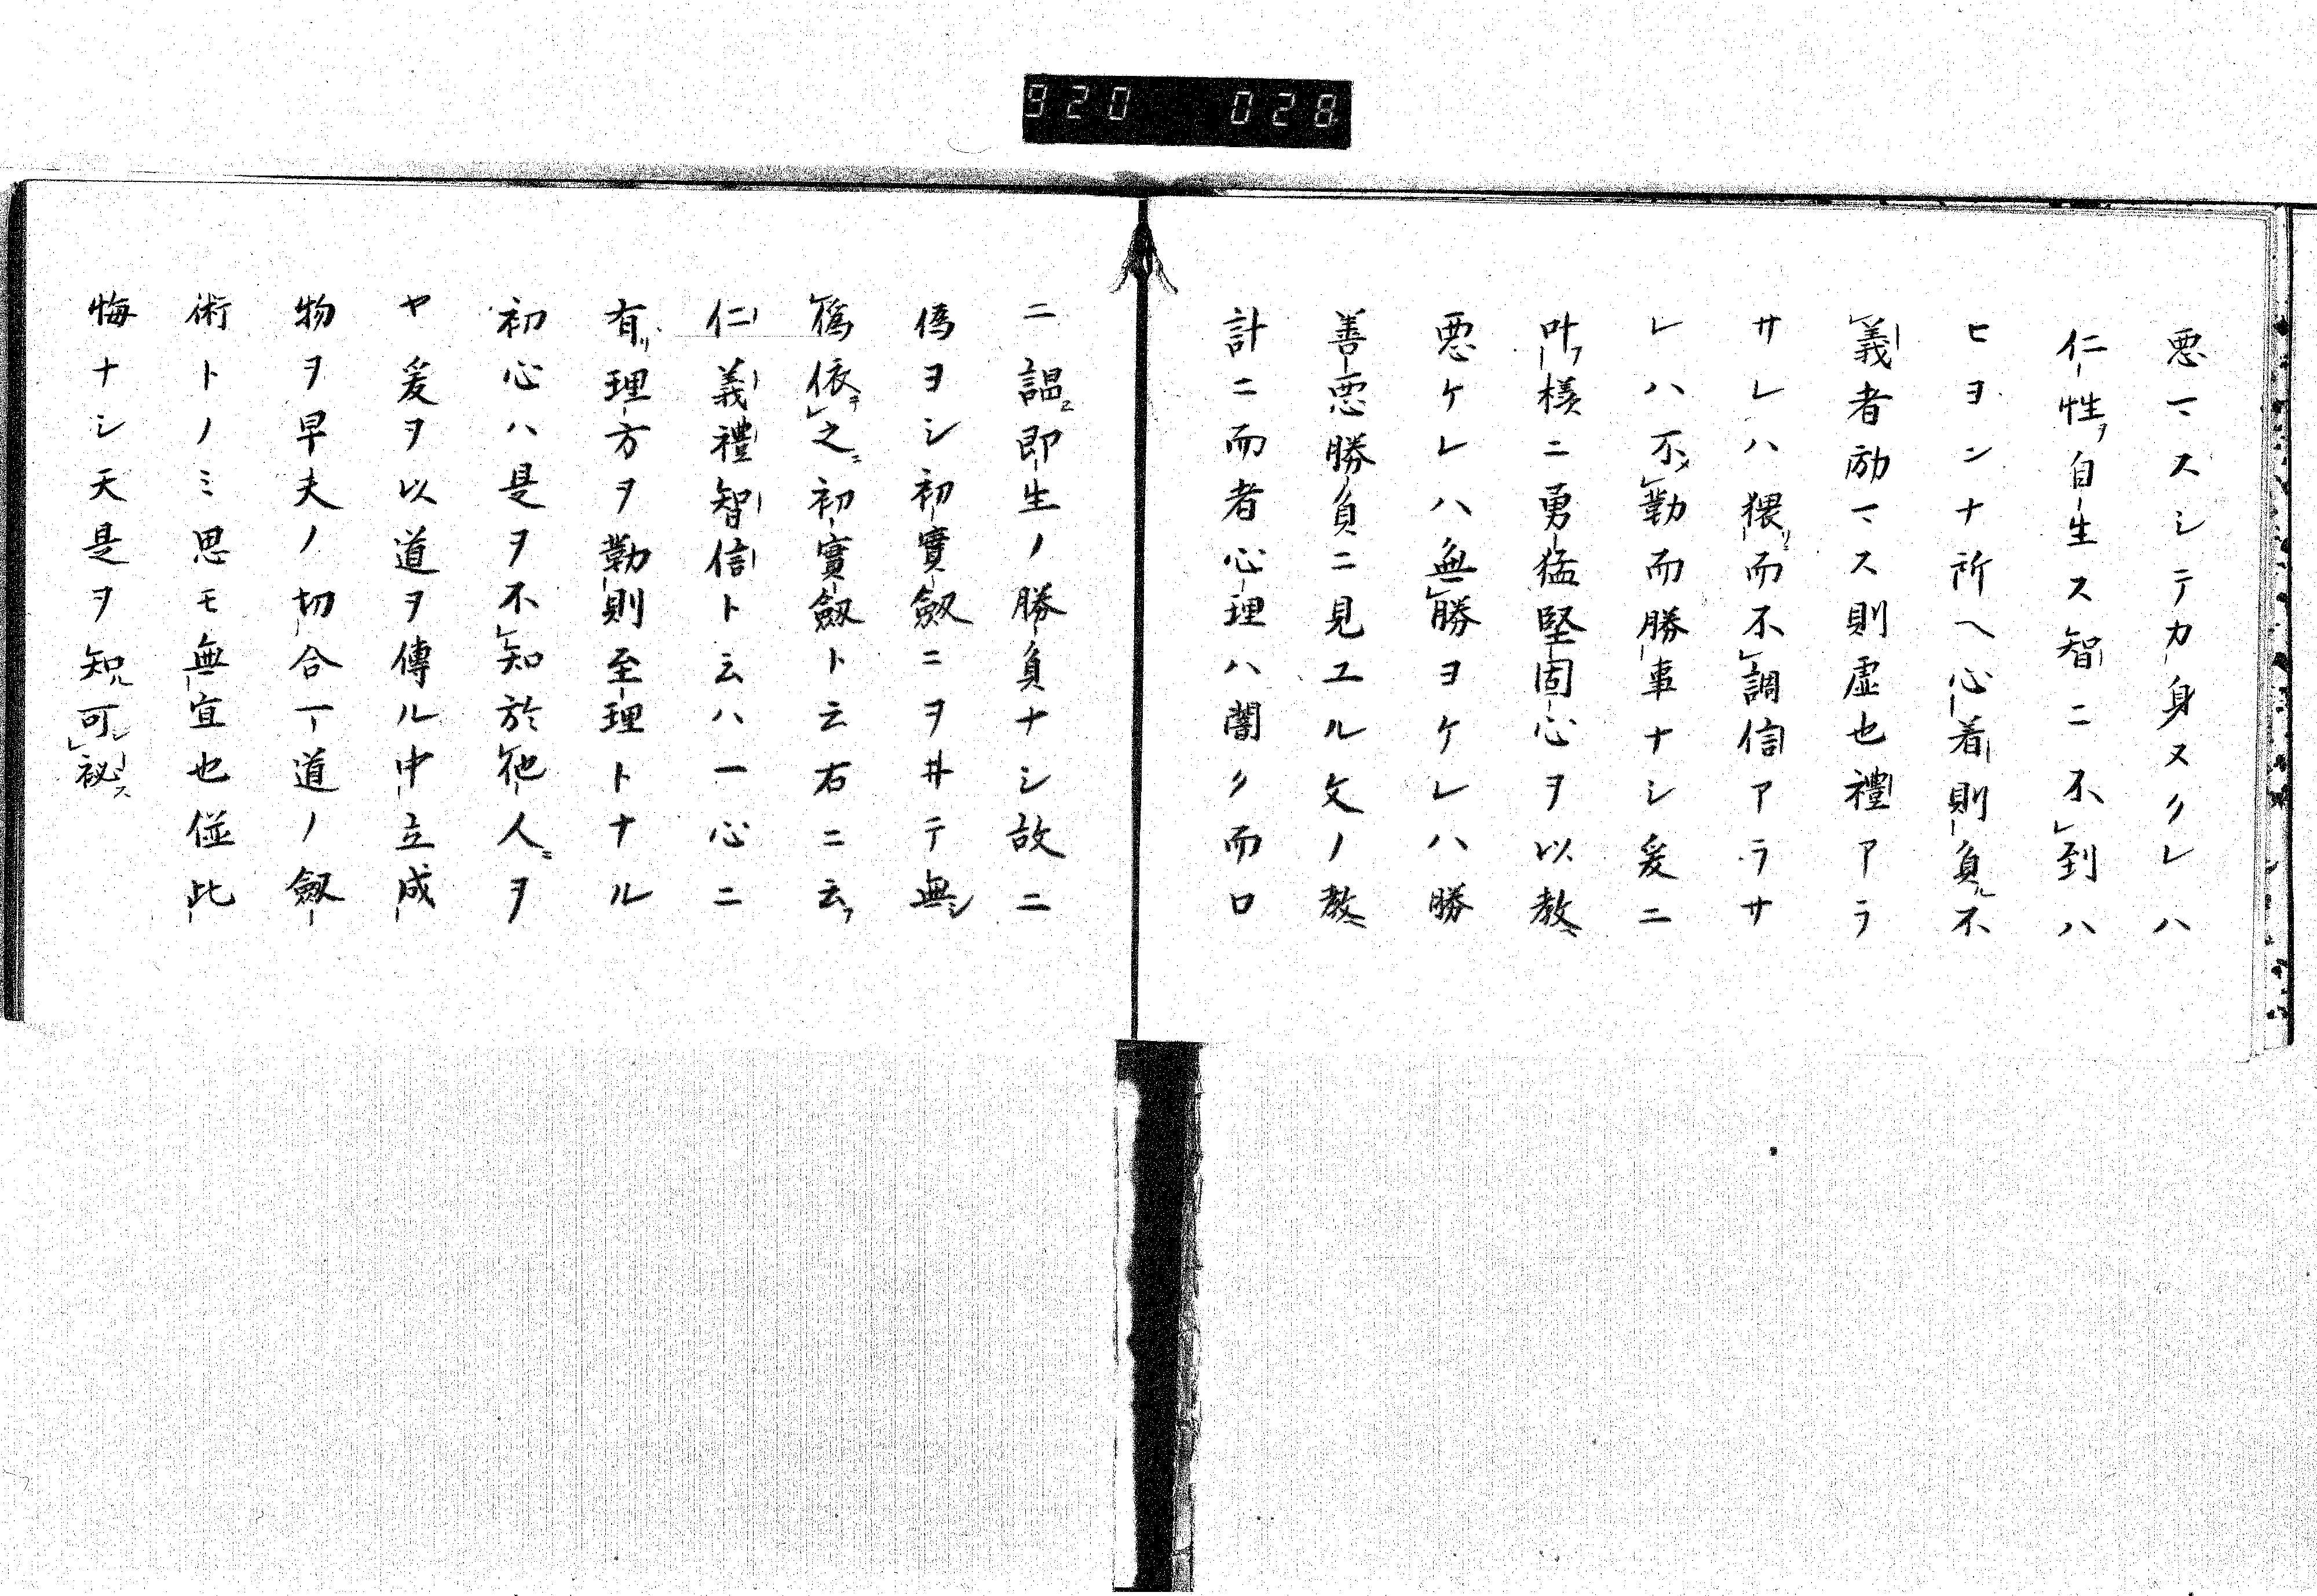 920 028
悪マスシテカ身ヌクレハ
仁性自生ス智ニ不到ハ
ヒヨンナ所へ心着則負不
義者励マス則虚也禮アラ
サレハ猥而不調信アラサ
レハ不勤而勝事ナシ爰ニ
叶様ニ勇猛堅固心ヲ以教
悪ケレハ無勝ヨケレハ勝
善悪勝負ニ見ユル文ノ教
計ニ而者心理ハ闇ク而口
ニ謳即生ノ勝負ナシ故ニ
偽ヨシ初實劔ニヲヰテ無
偽依之初實劔ト云右ニ云
仁義禮智信ト云ハ一心ニ
有理方ヲ勤則至理トナル
初心ハ是ヲ不知於他人ヲ
ヤ爰ヲ以道ヲ傳ル中立成
物ヲ早夫ノ切合ヿ道ノ劔
術トノミ思モ無宜也並此
悔ナシ天是ヲ知可秘